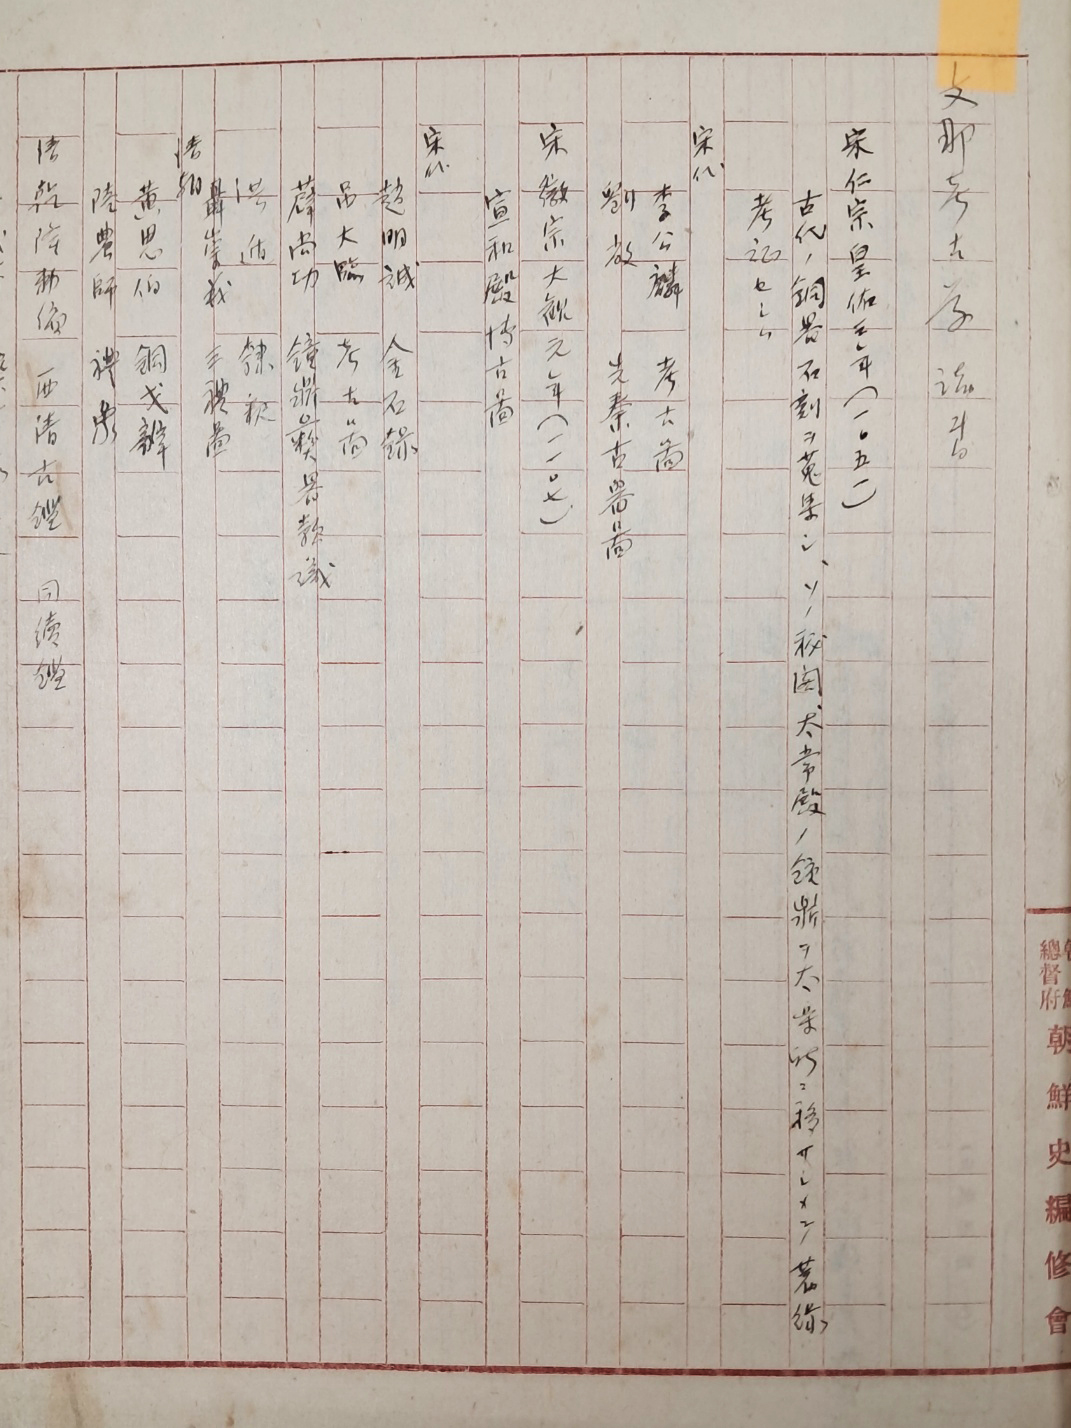 支那考古学
宋仁宗皇佑三年(一〇五一)
古代ノ銅器石刻ヲ蒐集シ、ソノ秘閣、太常殿ノ鐘鼎ヲ太楽所ニ移サレメ
考証セシム
宋代
李公麟 考古啚
劉敞 先秦古器啚
宋徽宗大観元年(一一〇七)
宣和殿博古啚
宋代
趙明誠 金石録
呂大臨 考古啚
薛尚功 鐘鼎彝器款識
洪适 隷釈
聶崇義 三禮啚
清朝
黄思伯 銅戈辨
陸農師 禮象
清乾隆勅編 西清古鑑 同續鑑
總督府
朝鮮史編修會